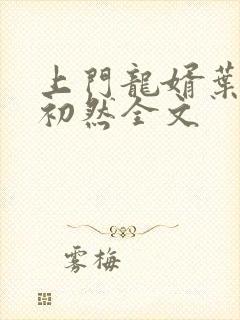 上門龍婿葉
初然全文
雾梅